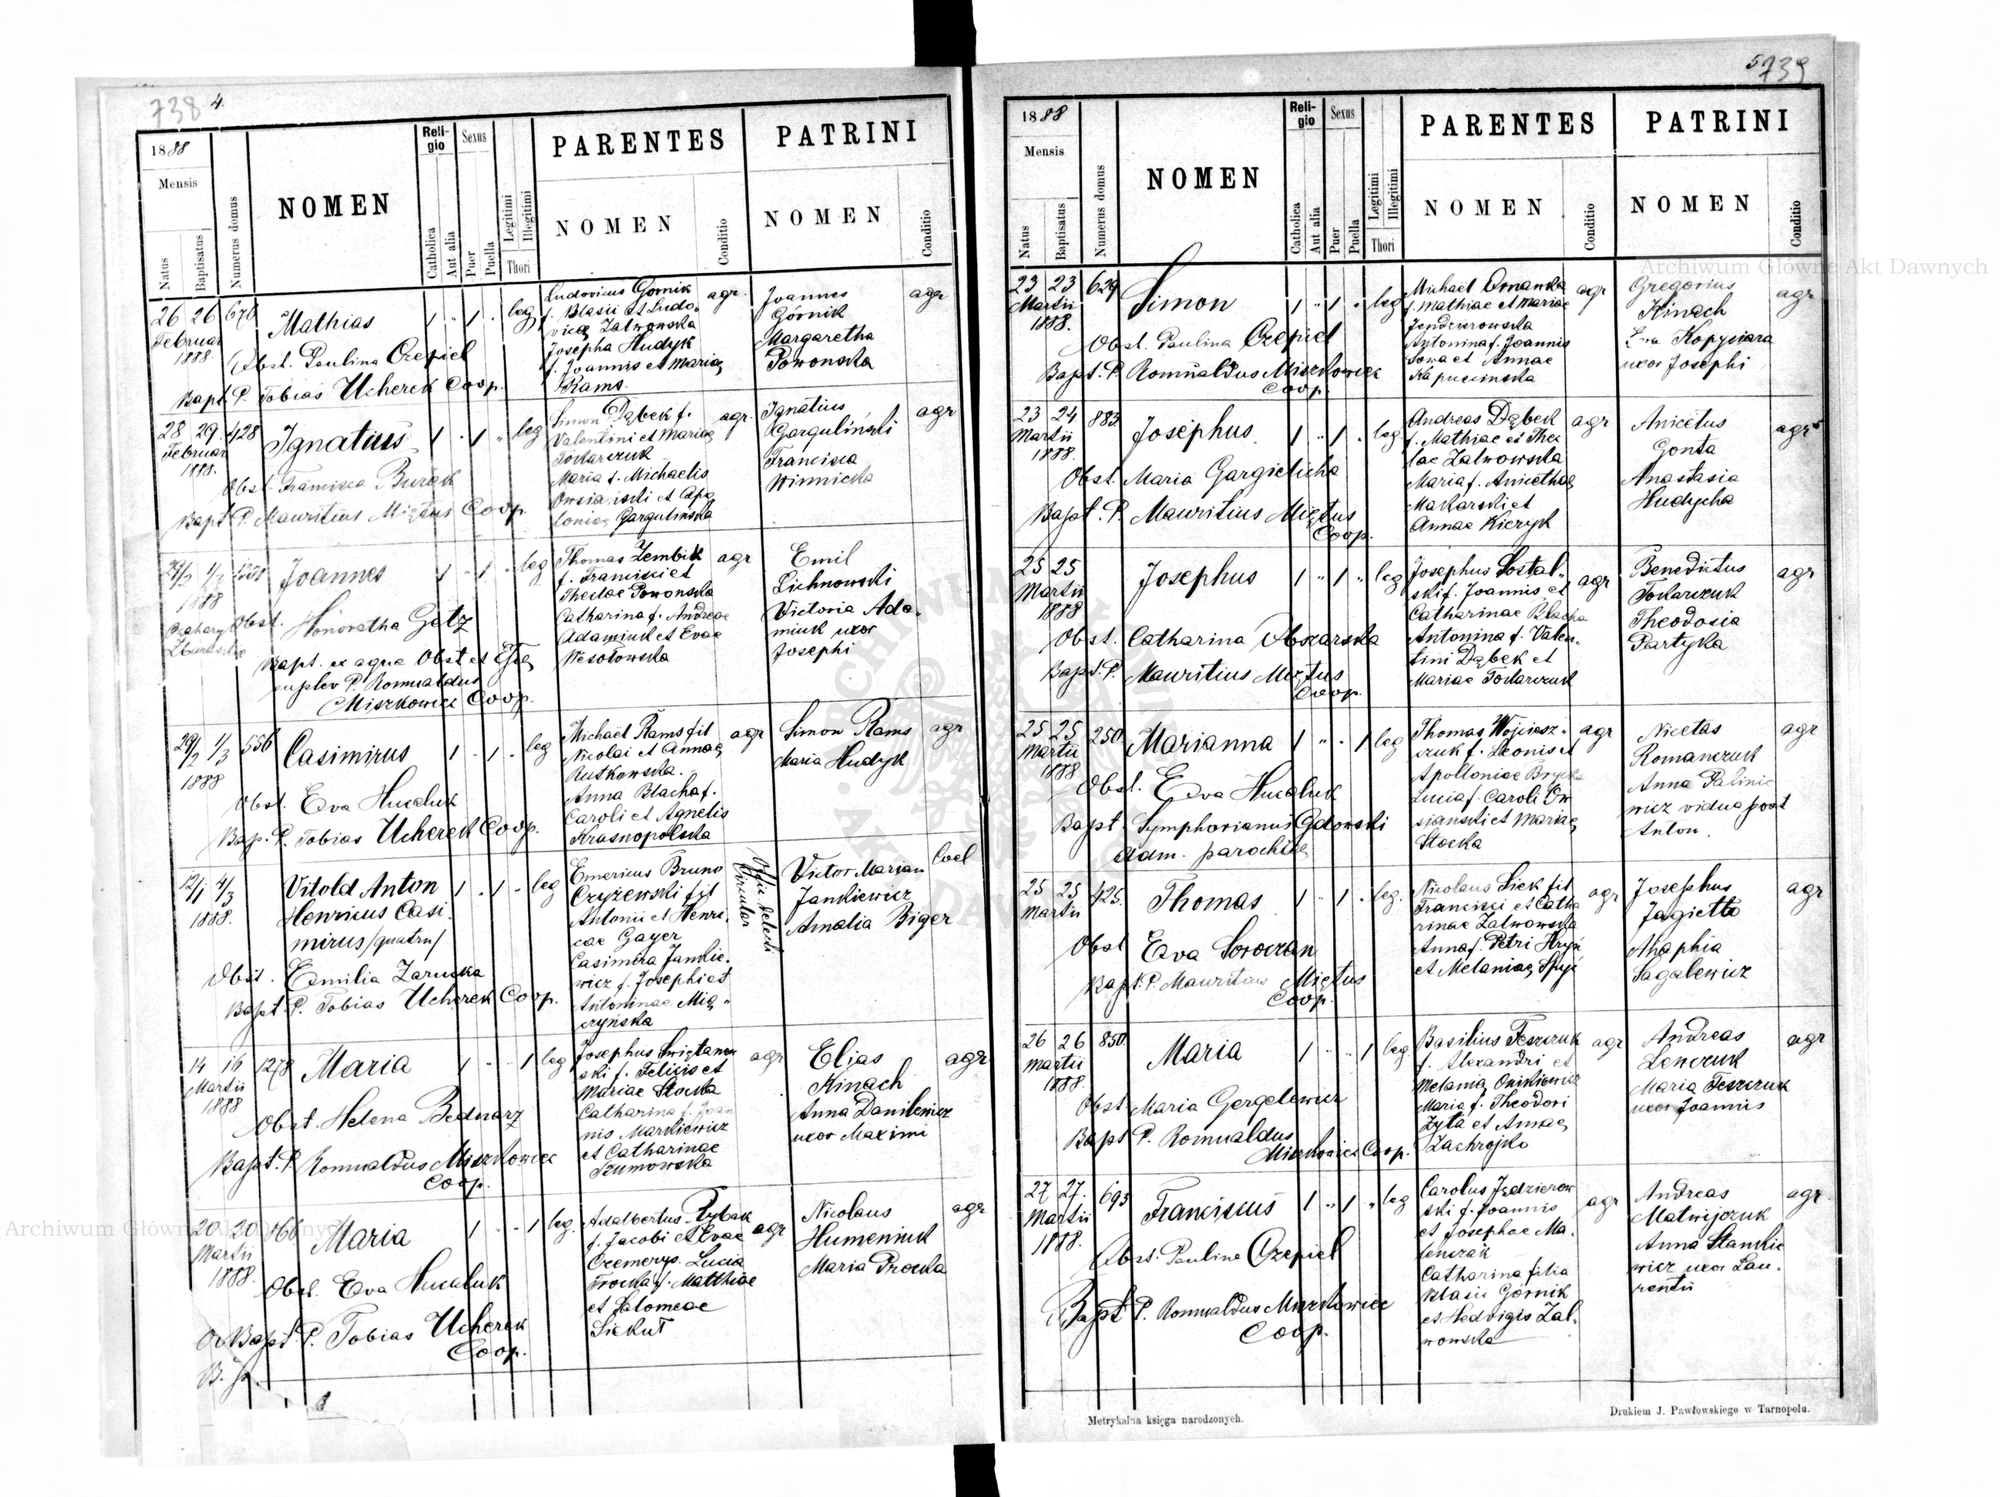 738 4.
1888
Mensis
Natus
Baptisatus
Numerus domus
NOMEN
Religio
Catholica
Aut alia
Sexus
Puer
Puella
Legitimi
Illegitimi
Thori
PARENTES
NOMEN
Conditio
PATRINI
NOMEN
Conditio
26 26 676 Mathias 1 " 1 " leg
Februar
1888.
Obst. Paulina Czepiel
Bapt. P. Tobias Ucherek Coop.
Ludovicus Górnik agr.
f. Blasii et Ludo-
vicę Zalwowska
Josepha Hudyk
f. Joannis et Marię
Rams.
Joannes agr
Górnik
Margaretha
Powonska
28 29 428 Ignatius 1 " 1 " leg
Februar
1888.
Obst. Francisca Burak
Bapt P. Mauritius Miętus Coop.
Simon Dąbek f. agr.
Valentini et Marię
Tokarczuk
Maria f. Michaelis
et Apo
lonię Gargulinska
Ignatius agr
Gargulinski
Francisca
Winnicka
29/2 1/3 Joannes 1 " 1 " leg
1888
Obst. Honoratha Getz
Bapt. ex aqua Obst et
suplev P. Romualdus
Miszkowicz Coop.
Thomas Zembik agr
f. Francisci et
Theclae Powonska
Catharina f. Andreae
Adamiuk et Evae
Wesołowska
Emil
Lichnowski
Victoria Ada-
miuk uxor
Josephi
29/2 1/3 556 Casimirus 1 " 1 " leg
1888
Obst. Eva Hucaluk
Bap. P. Tobias Ucherek Coop.
Michael Rams fil agr
Nicolai et Annae
Rutkowska.
Anna Blacha f.
Caroli et Agnetis
Krasnopolska
Simon Rams agr
Maria Hudyk
12/1 4/3 Vitold Anton 1 " 1 " leg
1888. Henricus Casi-
mirus
Obst. Emilia Zarucka
Bapt. P. Tobias Ucherek Coop.
Emericus Bruno
Czyżewski fil
Antonii et Henri-
cae Gayer
Casimira Jankie-
wicz f. Josephi et
Antoninae Mię-
czyńska
Victor Marian Coel
Jankiewicz
Amalia Biger
14 16 1278 Maria 1 " " 1 leg
Martii
1888
Obst. Helena Bednarz
Bapt. P. Romualdus Miszkowicz
Coop.
Josephus Swiętanow agr
ski f. Felicis et
Mariae Stocka
Catharina f. Joan
nis Markiewicz
et Catharinae
Szumowska
Elias agr
Kinach
Anna Danilewicz
uxor Maximi
20 20 466 Maria 1 " " 1 leg.
Martii
1888.
Obst. Eva Hucaluk
Bapt. P. Tobias Ucherek
Coop.
Adalbertus Rybak agr
f. Jacobi et Evae
Czemerys. Lucia
Trocka f. Matthiae
et Salomeae
Siekut
Nicolaus agr
Humeniuk
Maria Trocka
5 739
1888
Mensis
Natus
Baptisatus
Numerus domus
NOMEN
Religio
Catholica
Aut alia
Sexus
Puer
Puella
Legitimi
Illegitimi
Thori
PARENTES
NOMEN
Conditio
PATRINI
NOMEN
Conditio
23 23 629 Simon 1 " 1 " leg
Martii
1888.
Obst. Paulina Czepiel
Bapt. P. Romualdus Miszkowicz
Coop.
Michael agr
f. Mathiae et Mariae
Jendzierowska
Antonina f. Joannis
Sowa et Annae
Kapuscinska
Gregorius agr
Kinach
Eva Kopyciara
uxor Josephi
23 24 883 Josephus. 1 " 1 " leg
Martii
1888.
Obst. Maria Gargielicha
Bapt. P. Mauritius Miętus
Coop.
Andreas Dąbek agr
f. Mathiae et Thec
lae Zalwowska
Maria f. Anicethae
Makarski et
Annae Kiczyk
Anicetus agr
Gonta
Anastasia
Hudycha
25 25 Josephus 1 " 1 " leg
Martii
1888
Obst. Catharina Obszarska
Bapt. P. Mauritius Miętus
Coop.
Josephus Sostal- agr
ski f. Joannis et
Catharinae Blacha
Antonina f. Valen-
tini Dąbek et
Mariae Tokarczuk
Benedictus agr
Tokarczuk
Theodosia
Partyka
25 25 250 Marianna 1 " " 1 leg
Martii
1888
Obst. Eva Hucaluk
Bapt. Symphorianus Gdowski
Adm. parochię
Thomas Wojciesz- agr
czuk f. Leonis et
Apolloniae
Lucia f. Caroli Ow
sianski et Mariae
Stocka
Nicetas agr
Romanczuk
Anna Palinie
wicz vidua post
Anton.
25 25 425. Thomas 1 " 1 " leg.
Martii
Obst Eva Soroczan
Bapt. P. Mauritius Miętus
Coop.
Nicolaus Siek fil agr
Francisci et Catha
rinae Zalwowska
Anna f. Petri
et Melaniae
Josephus agr
Jagiełło
Ahaphia
Sagalewicz
26 26 850. Maria 1 " " 1 leg.
Martii
1888.
Obst Maria Gergelewicz
Bapt P. Romualdus
Miszkowicz Coop.
Basilius Teszczuk agr
f. Alexandri et
Melanię Onikiewicz
Maria f. Theodori
Zyta et Annae
Zachrojko
Andreas agr
Lewczuk
Maria Teszczuk
uxor Joannis
27 27. 693 Franciscus 1 " 1 " leg
Martii
1888.
Obst. Paulina Czepiel
Bapt P. Romualdus Miszkowicz
Coop.
Carolus Jędzierow agr
ski f. Joannis
et Josephae Ma-
lenczak
Catharina filia
Blasii Górnik
et Hedvigis Zal-
wowska
Andreas agr.
Matwijczuk
Anna Stankie
wicz uxor Lau-
rentii
Metrykalna księga narodzonych.
Drukiem J. Pawłowskiego w Tarnopolu.
Archiwum Główne Akt Dawnych
Archiwum Główne Akt Dawnych